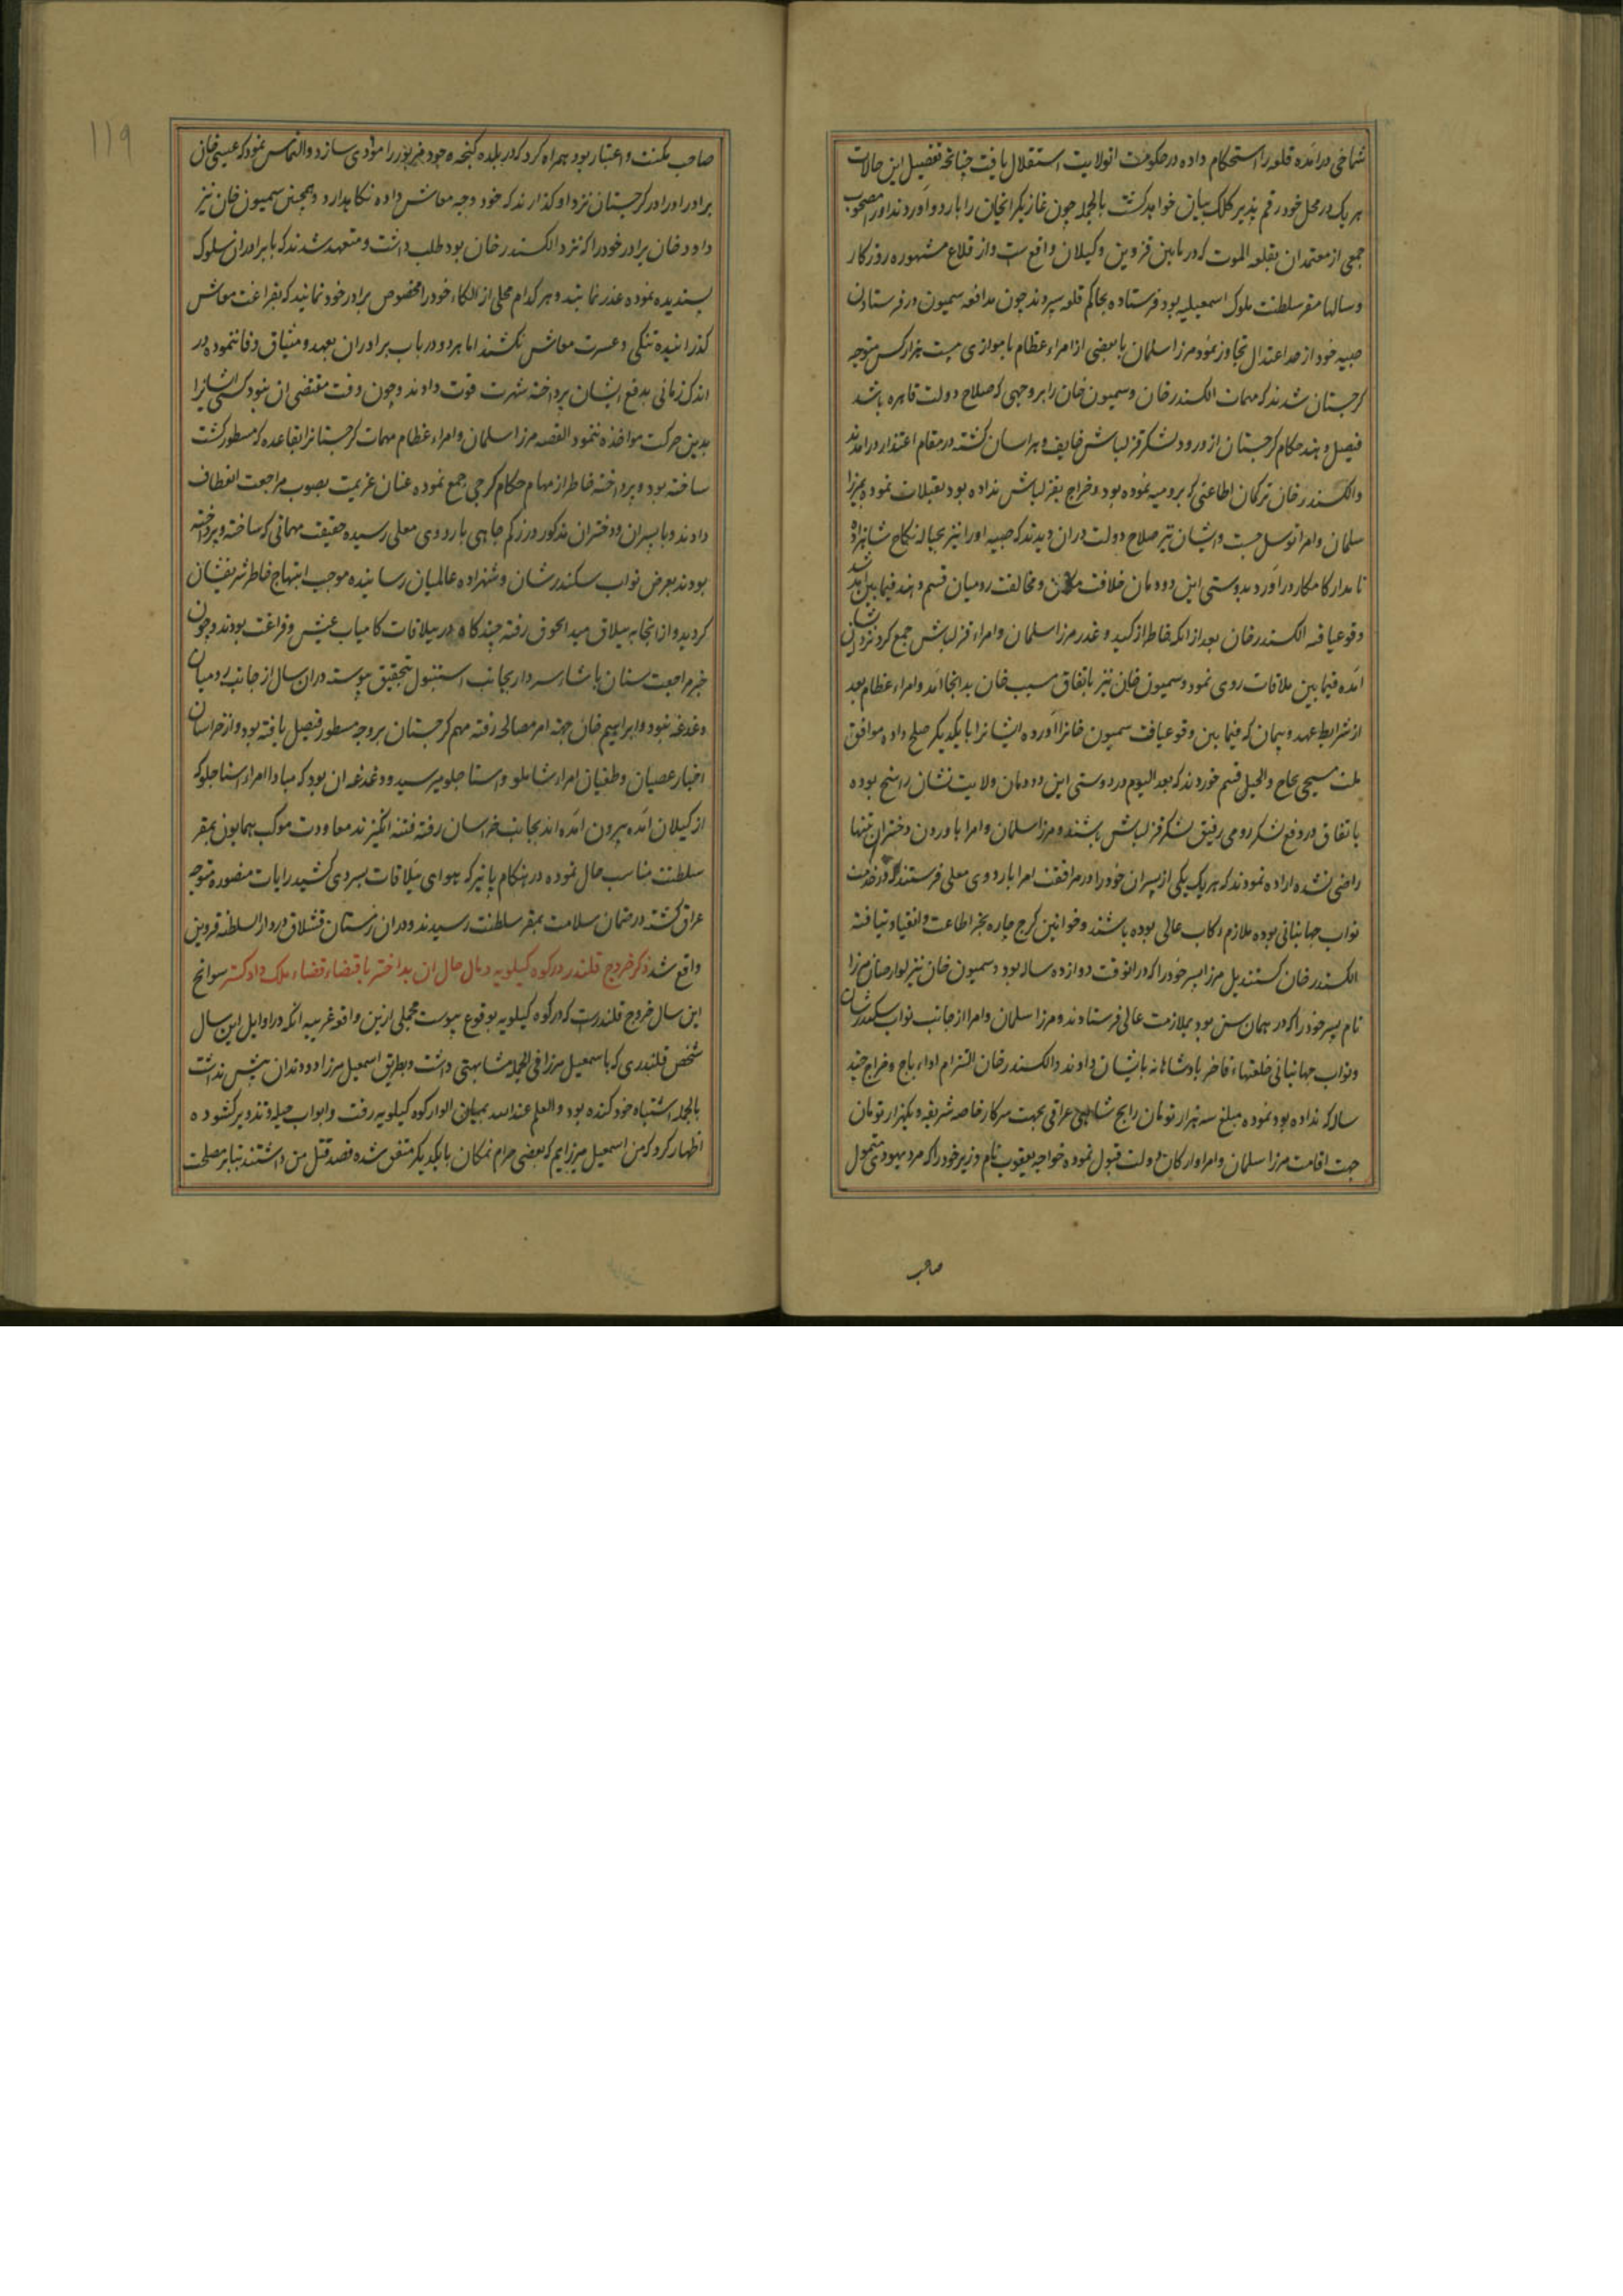 شماخی درآمده قلعه را استحکام داده در حکومت انولایت استقلال یافت چنانچه تفصیل این حالات
هر یک در محل خود رقم پذیر کلک بیان خواهد گشت بالجمله چون غازیکرانخان را باردو آوردند او را مصحوب
جمعی از معتمدان بقلعه الموت که در مابین قزوین و کیلان واقع ست و از قلاع مشهوره روزکار
و سالها مقر سلطنت ملوک اسمعیلیه بود فرستاده بحاکم قلعه سپردند چون مدافعه سمیون در فرستادن
صبیه خود از حد اعتدال تجاوز نمود مرزا سلمان با بعضی از امراء عظام با موازی بیست هزار کس متوجه
کرجستان شدند که مهمات الکسندر خان و سمیون خان را بر وجهی که صلاح دولت قاهره باشد
فیصل دهند حکام کرجستان از ورود لشکر قزلباش خایف و هراسان کشته در مقام اعتذار درآمدند
والکسندر خان ترکمان اطاعتی که برومیه نموده بود و خراج بقزلباش نداده بود بقبلات نموده بمیرزا
سلمان و امرا توسل جست و ایشان نیز صلاح دولت دران دیدند که صبیه او را نیز بحباله نکاح شاهزاده
نامدار کامکار درآورد بدوستی این دودمان خلافت مکان و مخالفت رومیان قسم دهند فیما بین آمد شد
وقوع یافه الکسندر خان بعد از انکه خاطر از کید و غدر مرزا سلمان و امراء قزلباش جمع کرد نزد ایشان
آمده فیما بین ملاقات روی نمود و سمیون خان نیز باتفاق مسیب خان بدانجا آمد و امراء عظام بعد
از شرایط عهد و پیمان که فیما بین وقوع یافت سمیون خانرا آورده ایشانرا بایکدیکر صلح داده موافق
ملت مسیحی بحاج و انجیل قسم خوردند که بعد الیوم در دوستی این دودمان ولایت نشان راسخ بوده
باتفاق در دفع لشکر رومی رفیق لشکر قزلباش باشند و مرزا سلمان و امرا باوردن دختران تنها
راضی نشده اراده نمودند که هر یک یکی از پسران خود را در مرافقت امرا باردوی معلی فرستند که در خدمت
نواب جهانبانی بوده ملازم رکاب عالی بوده باشند و خوانین کرج چاره بجز اطاعت و انقیاد نیافته
الکسندر خان کستندیل مرزا پسر خود را که در انوقت دوازده ساله بود و سمیون خان نیز لوارصاب مرزا
نام پسر خود را که در همان سن بود بملازمت عالی فرستادند و مرزا سلمان و امرا از جانب نواب سکندرشان
و نواب جهانبانی خلعتهاء فاخر پادشاهانه بایشان دادند و الکسندر خان التزام اداء باج و خراج چند
ساله که نداده بود نموده مبلغ سه هزار تومان رایج شاهی عراقی بجهت سرکار خاصه شریفه و یکهزار تومان
جهت اقامت مرزا سلمان و امرا و ارکان دولت قبول نموده خواجه یعقوب نام وزیر خود را که مرد یهودی متمول
صاحب
۱۱۹
صاحب مکنت و اعتبار بود همراه کرد که در بلده کنجه وجود مزبور را مؤدی سازد و التماس نمود که عیسی خان
برادر او را در کرجستان نزد او کذارند که خود وجه معاش داده نکاهدارد و همچنین سمیون خان نیز
داود خان برادر خود را که نزد الکسندر خان بود طلب داشت و متعهد شدند که با برادران سلوک
پسندیده نموده عذر نمایند و هر کدام محلی از الکاء خود را مخصوص برادر خود نمایند که بفراغت معاش
کذرانیده تنکی و عسرت معاش نکشند اما هر دو در باب برادران بعهد و میثاق وفا ننموده در
اندک زمانی بدفع ایشان پرداخته شهرت فوت دادند و چون وقت مقتضی ان نبود کسی ایشانرا
بدین حرکت مواخذه ننمود القصه مرزا سلمان و امراء عظام مهمات کرجستانرا بقاعده که مسطور کشت
ساخته بود و پرداخته خاطر از مهام حکام کرجی جمع نموده عنان عزیمت بصوب مراجعت انعطاف
دادند و با پسران و دختران مذکور در زکم جاهی باردوی معلی رسیده حقیقت مهمانی که ساخته و پرداخته
بودند بعرض نواب سکندرشان و شهزاده عالمیان رسانیده موجب ابتهاج خاطر شریفشان
کردید و از انجا به ییلاق میدانجوق رفته چند کاه در ییلاقات کامیاب عیش و فراغت بودند و چون
خبر مراجعت سنان پاشاء سردار بجانب استنبول بتحقیق پیوسته دران سال از جانب رومیان
دغدغه نبود و ابراهیم خان جهة امر مصالحه رفته مهم کرجستان بر وجه مسطور فیصل یافته بود و از خراسان
اخبار عصیان و طغیان امراء شاملو و استاجلو میرسید و دغدغه ان بود که مبادا امراء استاجلو که
از کیلان آمده بیرون آمده اند بجانب خراسان رفته فتنه انکیزند معاودت موکب همایون بمقر
سلطنت مناسب حال نموده در هنکام پائیز که هوای ییلاقات بسردی کشید رایات منصوره متوجه
عراق کشته در ضمان سلامت بمقر سلطنت رسیدند و دران زمستان قشلاق در دار السلطنه قزوین
واقع شد ذکر خروج قلندر در کوه کیلویه و مال حال ان بداختر باقتضاء قضاء ملک دادکستر سوانح
این سال خروج قلندرست که در کوه کیلویه بوقوع پیوست مجملی ازین واقعه غریبه انکه در اوایل این سال
شخص قلندری که با اسمعیل مرزا فی الجمله مشابهتی داشت و بطریق اسمعیل مرزا دو دندان پیش نداشت
بالجمله اشتباه خود کنده بود و العلم عند الله بمیان الوار کوه کیلویه رفت و ابواب حیله و تزویر کشوده
اظهار کرد که من اسمعیل میرزایم که بعضی حرام نمکان بایکدیکر متفق شده قصد قتل من داشتند بنابر مصلحت